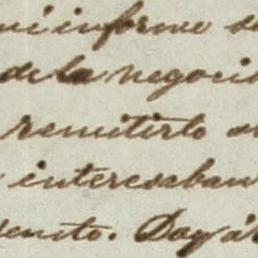 mi informe
de la negocia
remitirlo
interesaban
Doy á